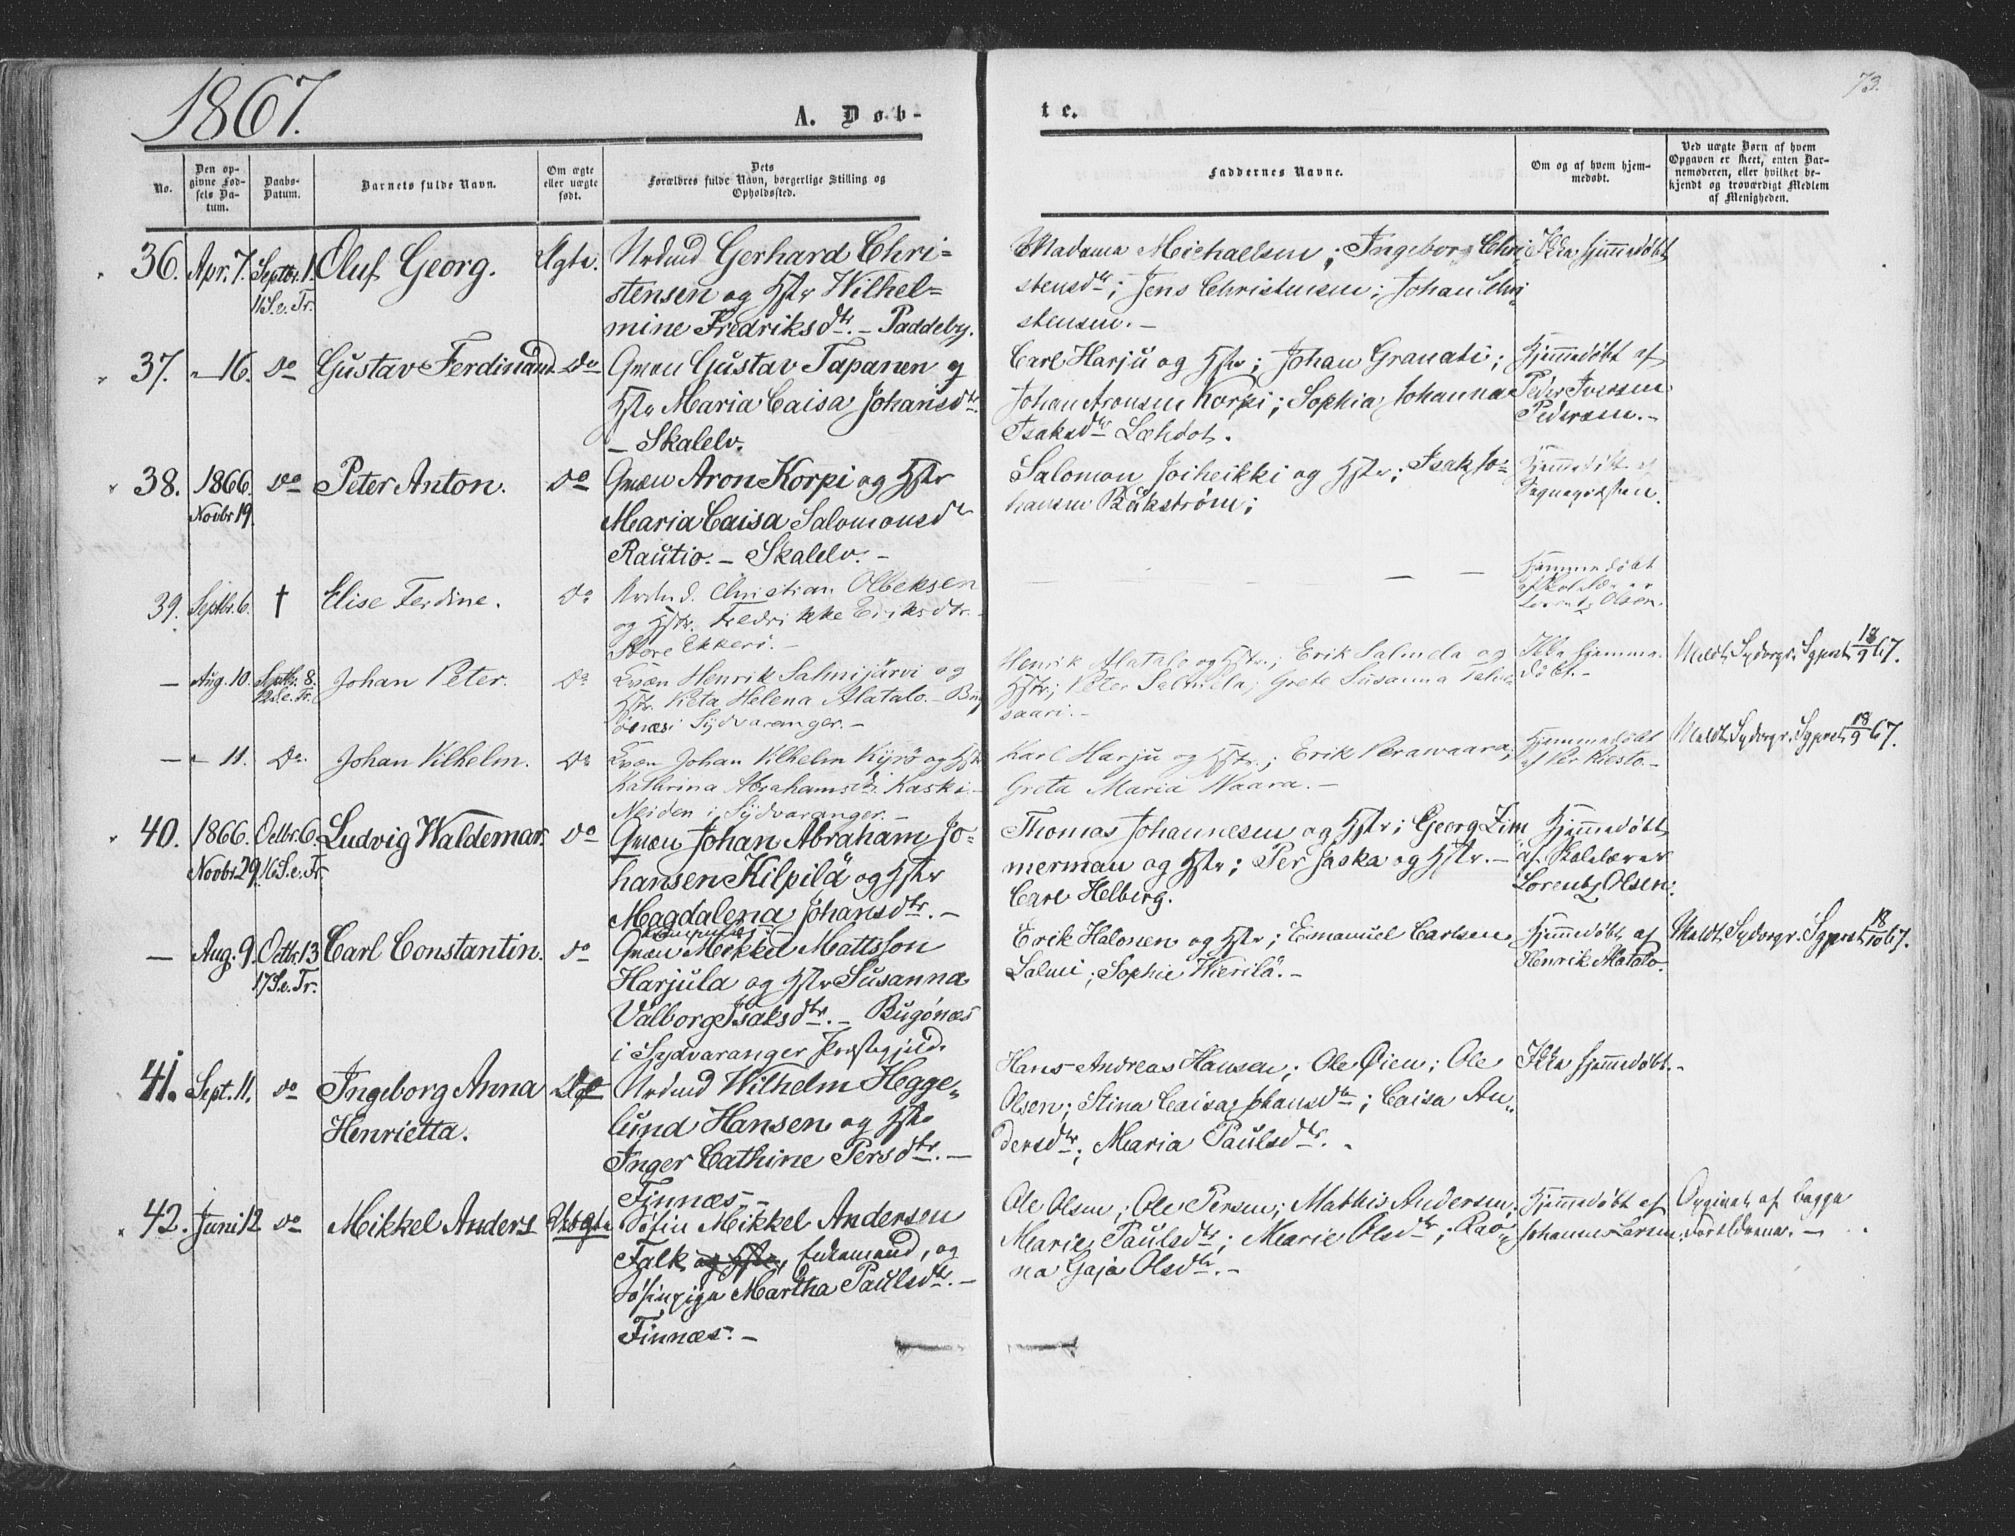 1867.
73.
A. Døb-
te.
No.
Den op-
givne Fød-
sels Da-
tum.
Daabs-
Datum.
Barnets fulde Navn.
Om ægte
eller uægte
født.
Dets
Forældres fulde Navn, borgerlige Stilling og
Opholdssted.
Faddernes Navne.
Om og af hvem hjem-
medøbt.
Ved uægte Børn af hvem
Opgaven er skeet, enten Bar-
nemoderen, eller hvilket be-
kjendt og troværdigt Medlem
af Menigheden.
36. Apr. 7. Septbr. 1. Oluf Georg. Ægte. Nordmd Gerhard Chri-
11 S. e. Tr. stensen og Hstr Wilhel-
mine Fredriksdtr. – Paddeby.
Madame Michaelsen; Ingeborg Chri-
stensdtr; Jens Christensen; Johan Chri-
stensen. –
Ikke hjemmedøbt
37. " 16. Do Gustav Ferdinand Do Qvæn Gustav Tapanen og
Hstr Maria Caisa Johansdtr.
– Skalelv.
Carl Harju og Hstr; Johan Granati;
Johan Aronsen Korpi; Sophia Johanna
Isaksdtr Læhdot.
Hjemmedøbt af
Peder Iversen
Pedersen. –
38. 1866. Do Peter Anton. Do Qvæn Aron Korpi og Hstr
Novbr 19. Maria Caisa Salomonsdtr
Rautio. – Skalelv. –
Salomon Joiheikki og Hstr; Isak Jo-
hansen Bækstrøm;
Hjemmedøbt af
39. Septbr. 6. † Elise Ferdine. Do Nordmd. Christian Olbeksen
og Hstr. Fredrikke Eriksdtr. –
Store Ekkerö. –
– – –
Hjemmedøbt
af Skolelærer
Lorentz Olsen.
– Aug. 10. Septbr. 8. Johan Peter. Do Qvæn Henrik Salmijärvi og
12 S. e. Tr. Hstr. Reta Helena Alatalo. – Bug
önæs i Sydvaranger. –
Henrik Alatalo og Hstr.; Erik Salmela og
Hstr; Peter Salmella; Grete Susanna
saari. –
Ikke hjemme-
døbt. –
Meldt Sydvgr. Sgprst 18/9 67.
– " 11. Do. Johan Vilhelm. Do Qvæn Johan Vilhelm Kyrö og Hstr
Kathrina Abrahamsdtr Kaski. –
Neiden i Sydvaranger. –
Karl Harju og Hstr.; Erik Perawaara;
Greta Maria Waara. –
Hjemmedøbt
af Per Riesto –
Meldt Sydvgr. Sgprst 18/9 67.
40. 1866. Octbr. 6. Ludvig Waldemar. Do Qvæn Johan Abraham Jo-
Novbr 29. 16 S. e. Tr. hansen Kilpilä og Hstr
Magdalena Johansdtr. –
Thomas Johannesen og Hstr; Georg Zim
merman og Hstr; Per Jaska og Hstr. –
Carl Helberg.
Hjemmedøbt
af Skolelærer
Lorentz Olsen.
– Aug. 9. Octbr. 13 Carl Constantin. Do Qvæn Mikkel Mattsson
17 S. e. Tr. Harjula og Hstr Susanna
Valborg Isaksdtr. – Bugönæs
i Sydvaranger Præstegjeld.
Erik Halonen og Hstr; Emanuel Carlsen
Salmi; Sophie Wierilä. –
Hjemmedøbt af
Henrik Alatalo.
Meldt Sydvgr. Sgprst 18/10 67.
41. Sept. 11. Do Ingeborg Anna Do Nordmd Wilhelm Hegge-
Henrietta. lund Hansen og Hstr
Inger Cathine Persdtr. –
Finnæs. –
Hans Andreas Hansen; Ole Øien; Ole
Olsen; Stina Caisa Johansdtr; Caisa An-
dersdtr; Maria Paulsdtr. –
Ikke hjemmedøbt. –
42. Juni 12 Do Mikkel Anders Uægte Søfin Mikkel Andersen
Falk og Hstr, Enkemand, og
Søfinpige Martha Paulsdtr. –
Finnæs. –
Ole Olsen; Ole Persen; Mathis Andersen;
Marie Paulsdtr; Marie Olsdtr; Rag-
na Gaja Olsdtr. –
Hjemmedøbt af
Johannes Larsen.
Opgivet af begge
Forældrene. –